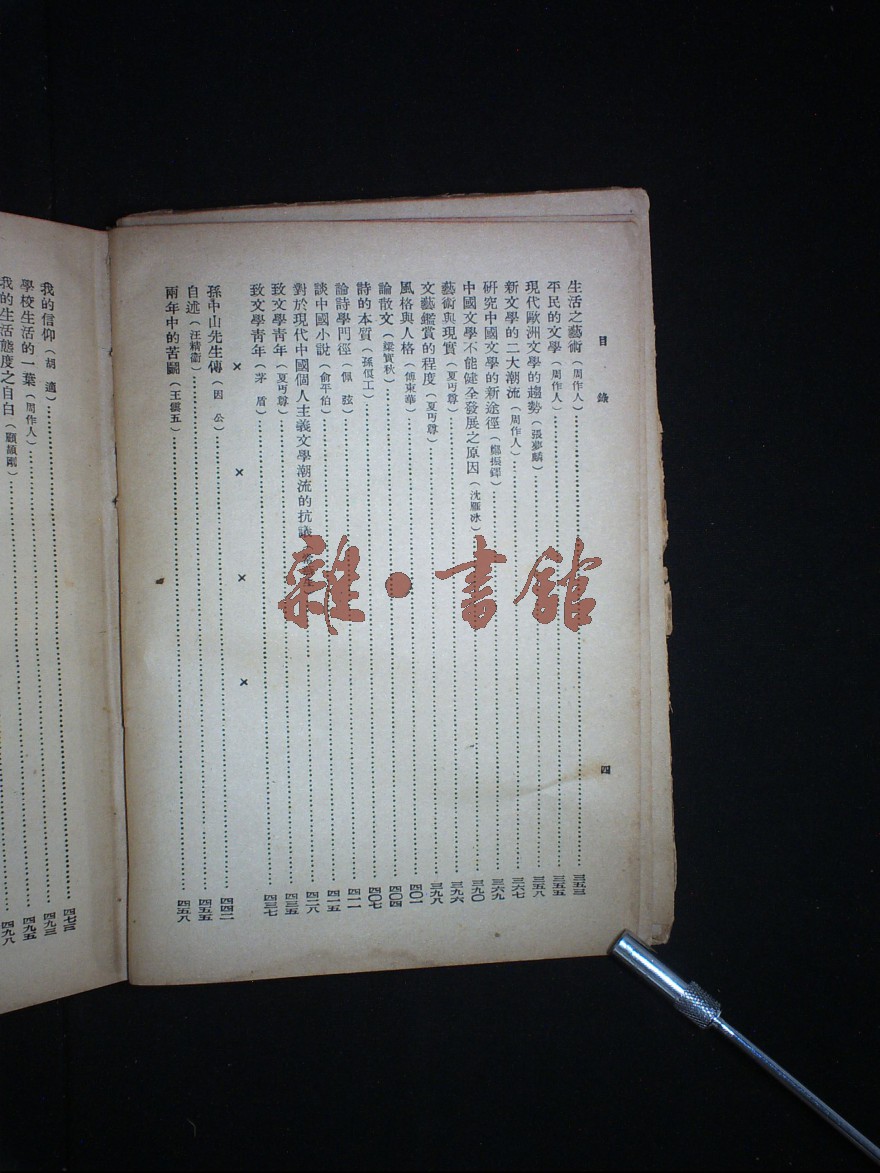 目錄
四
生活之藝術(周作人)三五三
平民的文學(周作人)三五五
現代歐洲文學的趨勢(張夢麟)三五八
新文學的二大潮流(周作人)三六七
研究中國文學的新途徑(鄭振鐸)三六九
中國文學不能健全發展之原因(沈雁冰)三九〇
藝術與現實(夏丏尊)三九六
文藝鑑賞的程度(夏丏尊)三九八
風格與人格(傅東華)四〇一
論散文(梁實秋)四〇四
詩的本質(孫俍工)四〇七
論詩學門徑(佩弦)四一一
談中國小說(俞平伯)四一五
對於現代中國個人主義文學潮流的抗議 四二八
致文學靑年(夏丏尊)四三五
致文學靑年(茅盾)四三七
× × × ×
孫中山先生傳(因公)四四二
自述(汪精衛)四五五
兩年中的苦鬭(王雲五)四五八
我的信仰(胡適)四七三
學校生活的一葉(周作人)四九三
我的生活態度之自白(顧頡剛)四九五
四九八
雜·書館